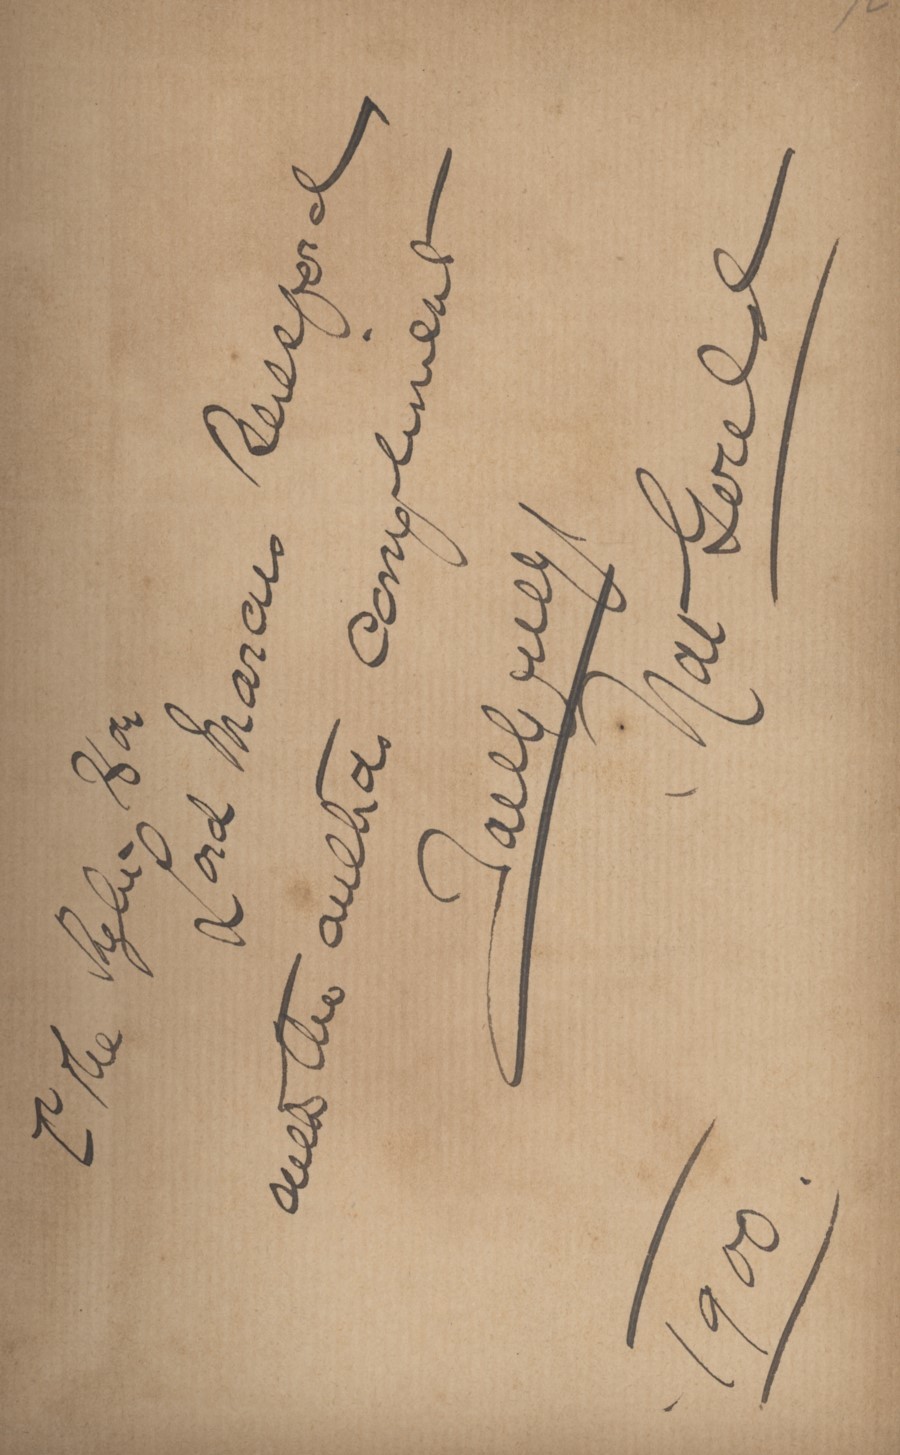 To the Right Hon
Lord Marcus Beresford
with the authors compliments
Faithfully
Nat Gould
1900.